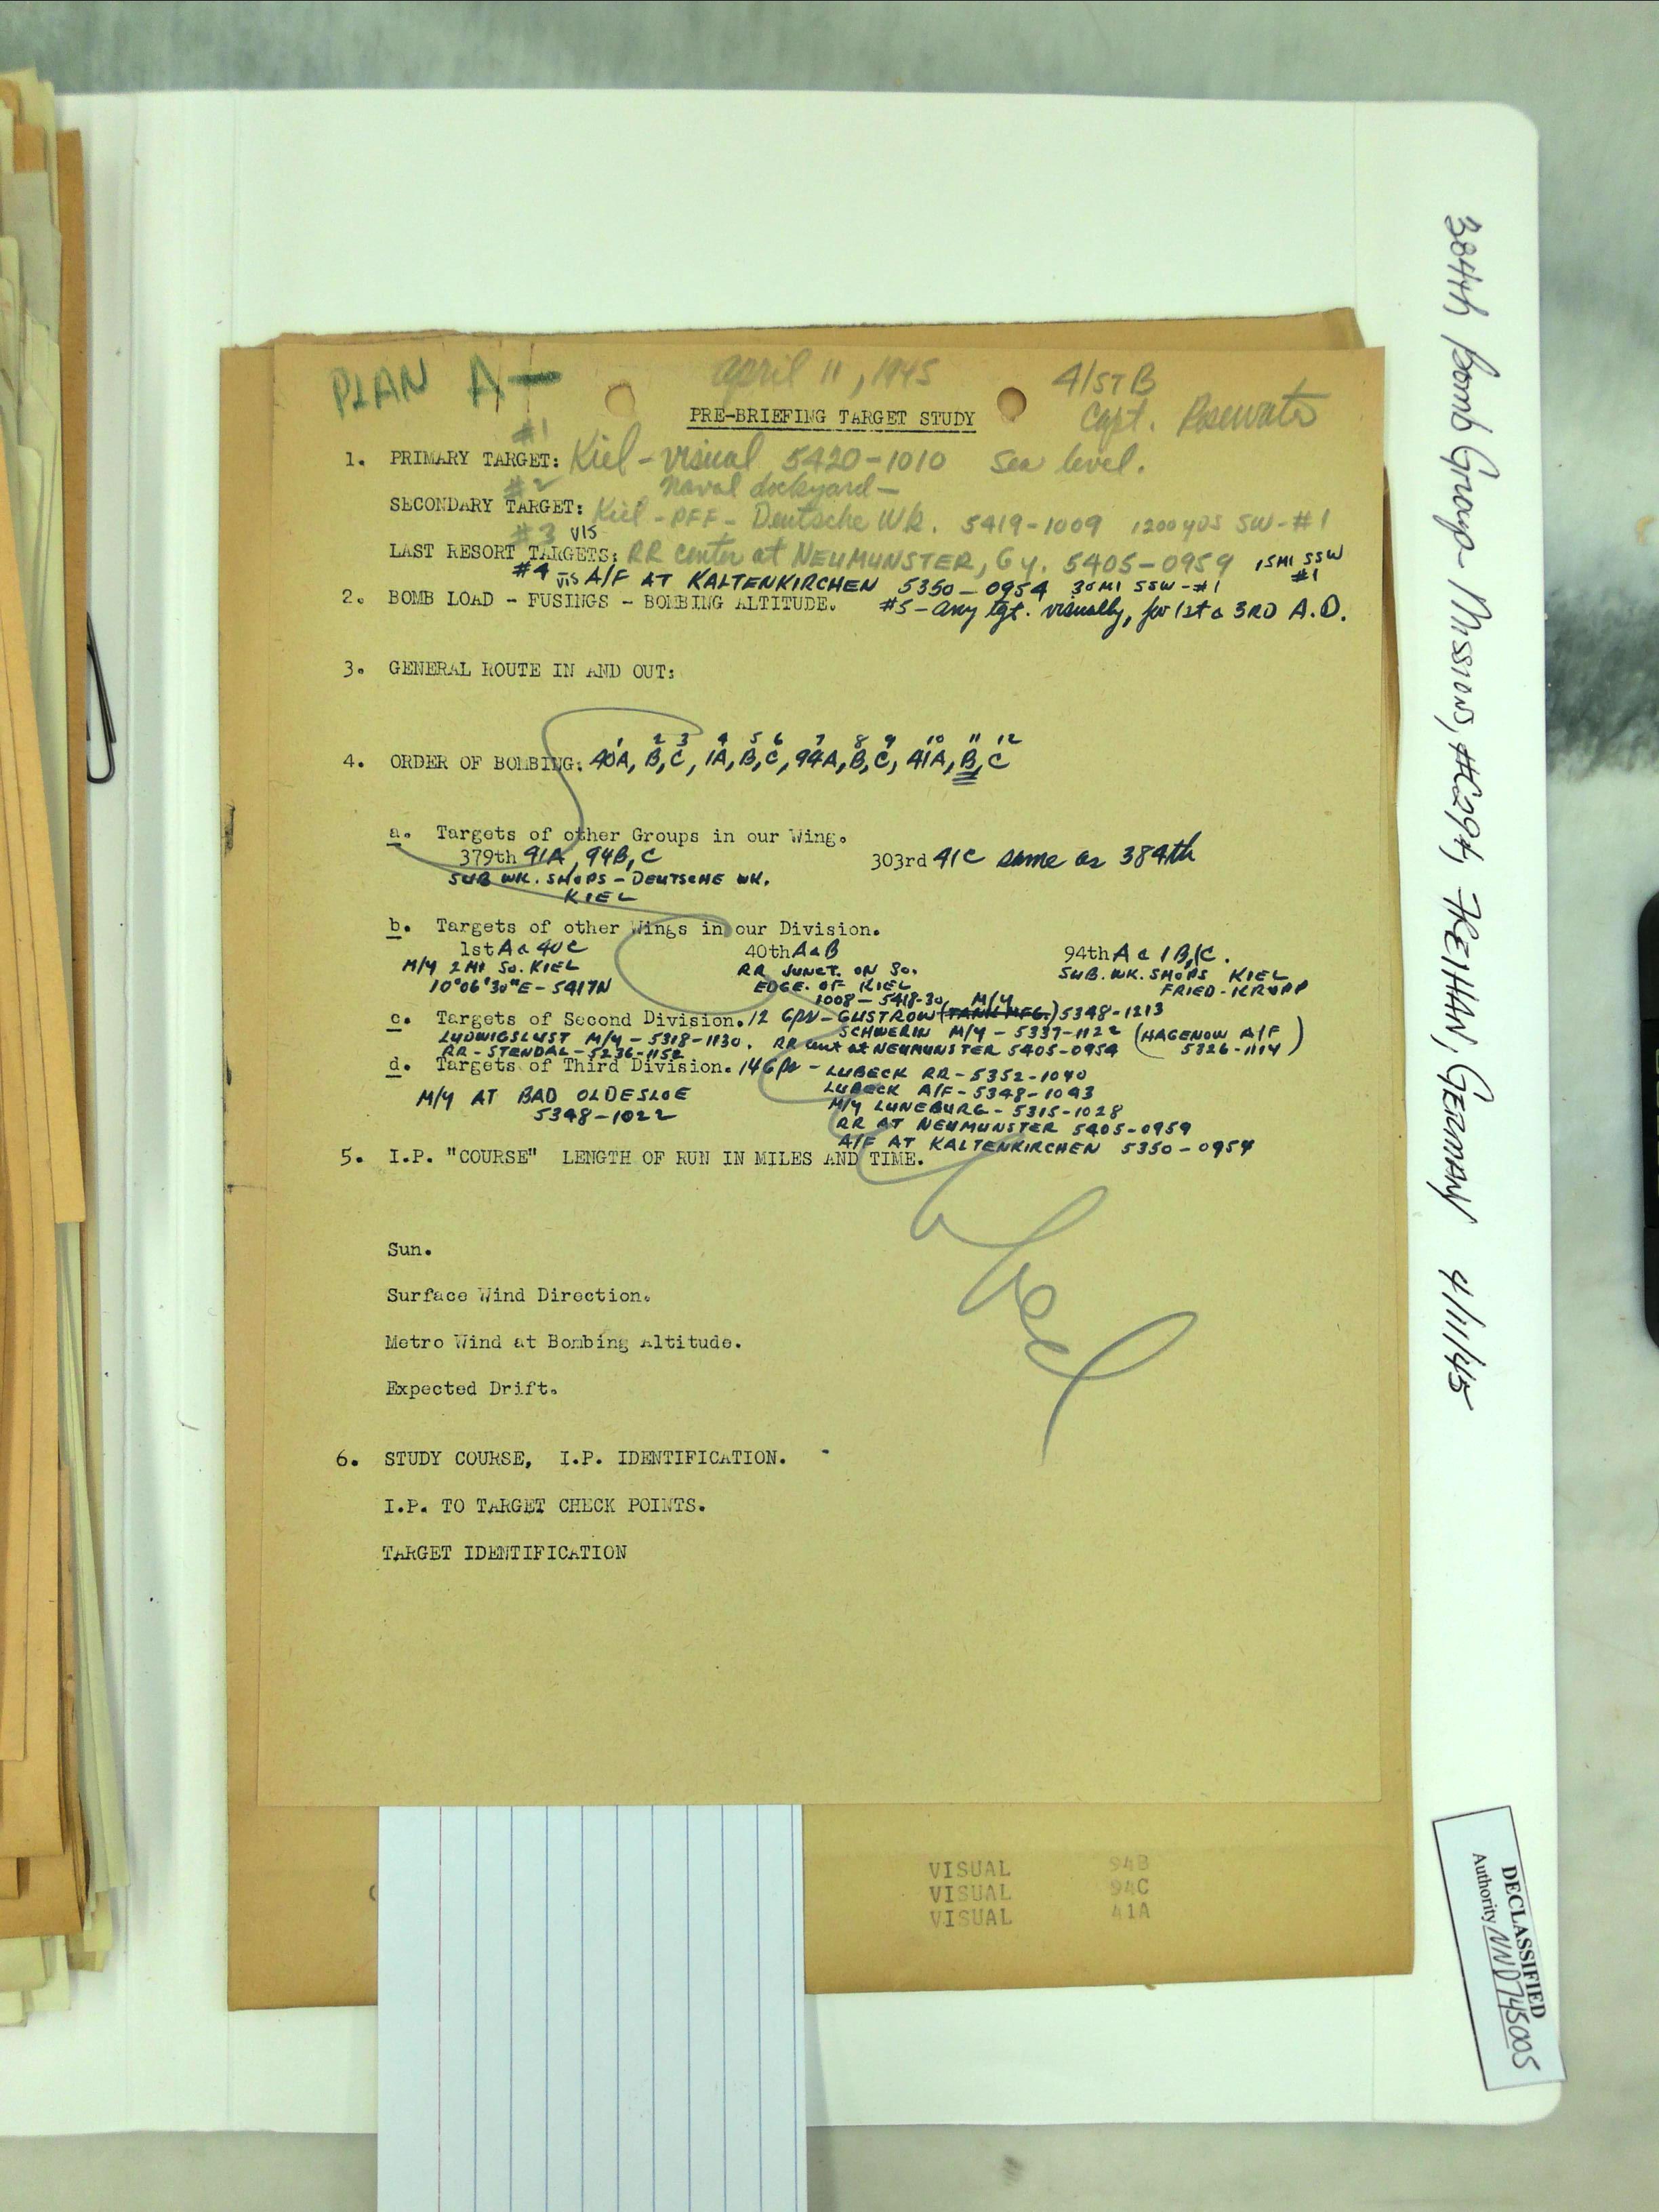 PLAN A
april 11, 1945
41ST B
Capt. Rosewater
PRE-BRIEFING TARGET STUDY
#1
1. PRIMARY TARGET: Kiel - visual 5420-1010 Sea level.
naval dockyard -
#2
SECONDARY TARGET: Kiel - PFF - Deutsche Wk. 5419-1009 1200 yds SW - #1
#3 VIS
LAST RESORT TARGETS: RR center at NEUMUNSTER, Gy. 5405-0959 15 MI SSW #1
#4 VIS A/F AT KALTENKIRCHEN 5350-0954 30 MI SSW - #1
2. BOMB LOAD - FUSINGS - BOMBING ALTITUDE. #5 - any tgt. visually, for 1st & 3RD A.D.
3. GENERAL ROUTE IN AND OUT:
1 2 3 4 5 6 7 8 9 10 11 12
4. ORDER OF BOMBING: 40A, B, C, 1A, B, C, 94A, B, C, 41A, B, C
a. Targets of other Groups in our Wing.
379th 41A, 94B, C 303rd 41C same as 384th
SUB WK. SHOPS - DEUTSCHE WK.
KIEL
b. Targets of other Wings in our Division.
1st A & 40C 40th A & B 94th A & 1B, C.
M/Y 2 MI SO. KIEL RR JUNCT. ON SO. SUB. WK. SHOPS KIEL
10°06'30"E - 5417N EDGE. OF KIEL FRIED - KRUPP
1008 - 5418-30 M/Y
c. Targets of Second Division. 12 Gps - GUSTROW (TANK MFG.) 5348-1213
LUDWIGSLUST M/Y - 5318-1130. SCHWERIN M/Y - 5337-1122 (HAGENOW A/F 5326-1114)
RR - STENDAL - 5236-1152 RR cent at NEUMUNSTER 5405-0954
d. Targets of Third Division. 14 Gps - LUBECK RR - 5352-1040
LUBECK A/F - 5348-1043
M/Y AT BAD OLDESLOE M/Y LUNEBURG - 5315-1028
5348-1022 RR AT NEUMUNSTER 5405-0959
A/F AT KALTENKIRCHEN 5350-0954
5. I.P. "COURSE" LENGTH OF RUN IN MILES AND TIME.
Sun.
Surface Wind Direction.
Metro Wind at Bombing Altitude.
Expected Drift.
6. STUDY COURSE, I.P. IDENTIFICATION.
I.P. TO TARGET CHECK POINTS.
TARGET IDENTIFICATION
VISUAL 94B
VISUAL 94C
VISUAL 41A
384th Bomb Group - Missions, #C294, FREIHAN, GERMANY 4/11/45
DECLASSIFIED
Authority NND745005